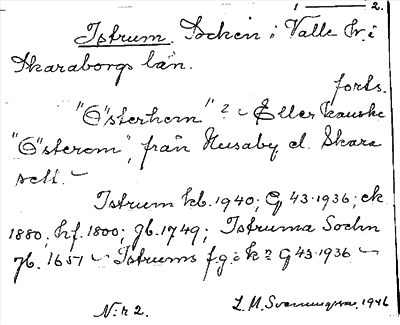 1 — 2.
Istrum. Socken i Valle hr. i
Skaraborgs län.
forts.
"Ö"sterhem" ? - Eller kanske
"Ö"sterem", från Husaby el. Skara
sett. -
Istrum kb. 1940; G 43-1936; ek
1880; hf. 1800; jb. 1749; Istruma Sochn
jb. 1651 - Istrums f.g. i k? G 43-1936 -
N:r 2. L. M. Svenungsson. 1946